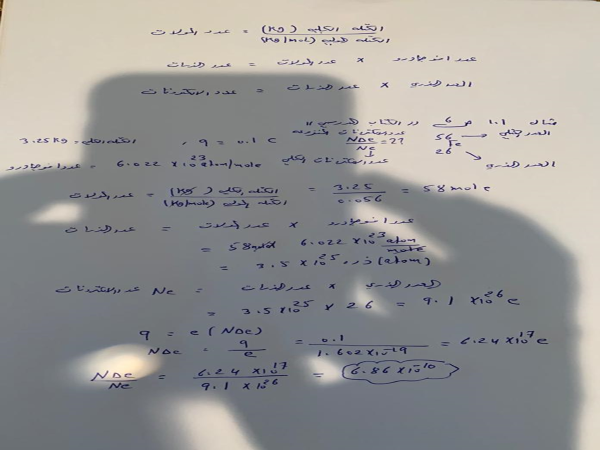 عدد المولات = الكتله الكليه (Kg) / الكتله المولیه (Kg/mol)
عدد الذرات = عدد المولات × عدد افوجادرو
عدد الالكترونات = عدد الذرات × العدد الذري
مثال 1.1 ص 6 ر الكتاب المدرسي "
العدد الكتلي ← 56 Fe 26 → العدد الذري
عدد الالكترونات المنزوعه NDe / Ne = ?? عدد الالكترونات الكلي
q = 0.1 c , الكتله الكليه = 3.25 Kg
عدد افوجادرو = 6.022 × 10^23 atom/mole
عدد المولات = الكتله الكليه (Kg) / الكتله المولیه (Kg/mol) = 3.25 / 0.056 = 58 mole
عدد الذرات = عدد المولات × عدد افوجادرو
= 58 mole 6.022 × 10^23 atom/mole
= 3.5 × 10^25 ذره (atom)
عدد الالكترونات Ne = عدد الذرات × العدد الذري
= 3.5 × 10^25 × 26 = 9.1 × 10^26 e
q = e (NDe)
NDe = q / e = 0.1 / 1.602 × 10^-19 = 6.24 × 10^17 e
NDe / Ne = 6.24 × 10^17 / 9.1 × 10^26 = 6.86 × 10^-10